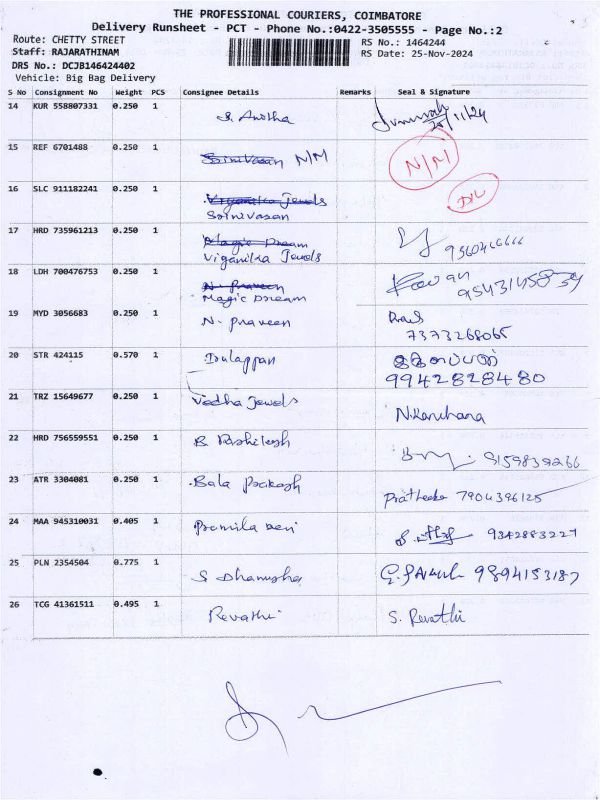 THE PROFESSIONAL COURIERS, COIMBATORE
Delivery Runsheet - PCT - Phone No.:0422-3505555 - Page No.:2
Route: CHETTY STREET RS No.: 1464244
Staff: RAJARATHINAM RS Date: 25-Nov-2024
DRS No.: DCJB146424402
Vehicle: Big Bag Delivery
S No Consignment No Weight PCS Consignee Details Remarks Seal & Signature
14 KUR 558807331 0.250 1 S. Anitha 25/11/24
15 REF 6701488 0.250 1 Srinivasan N/M N/M
16 SLC 911182241 0.250 1 Viganika Jewels
Srinivasan
17 HRD 735961213 0.250 1 Magic Dream
Viganika Jewels
18 LDH 700476753 0.250 1 N. Praveen
Magic Dream
19 MYD 3056683 0.250 1 N. Praveen
7373268065
20 STR 424115 0.570 1
9942828480
21 TRZ 15649677 0.250 1 Vedha Jewels N. Kanchana
22 HRD 756559551 0.250 1 B.
23 ATR 3304081 0.250 1 Bala Prakash 7904396125
24 MAA 945310031 0.405 1 Promila Devi 9342883227
25 PLN 2354504 0.775 1 S Dhanusha 9894153187
26 TCG 41361511 0.495 1 Revathi S. Revathi